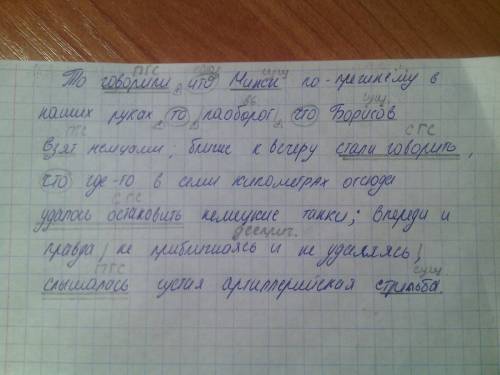 ПГС союз сущ.
То говорили, что Минск по-прежнему в
вв. сущ.
наших руках, то, наоборот, что Борисов
ПГС СГС
взят немцами; ближе к вечеру стали говорить,
что где-то в семи километрах отсюда
СГС
удалось остановить немецкие танки; впереди и
дееприч.
правда, не приближаясь и не удаляясь,
ПГС сущ.
слышалась густая артиллерийская стрельба.